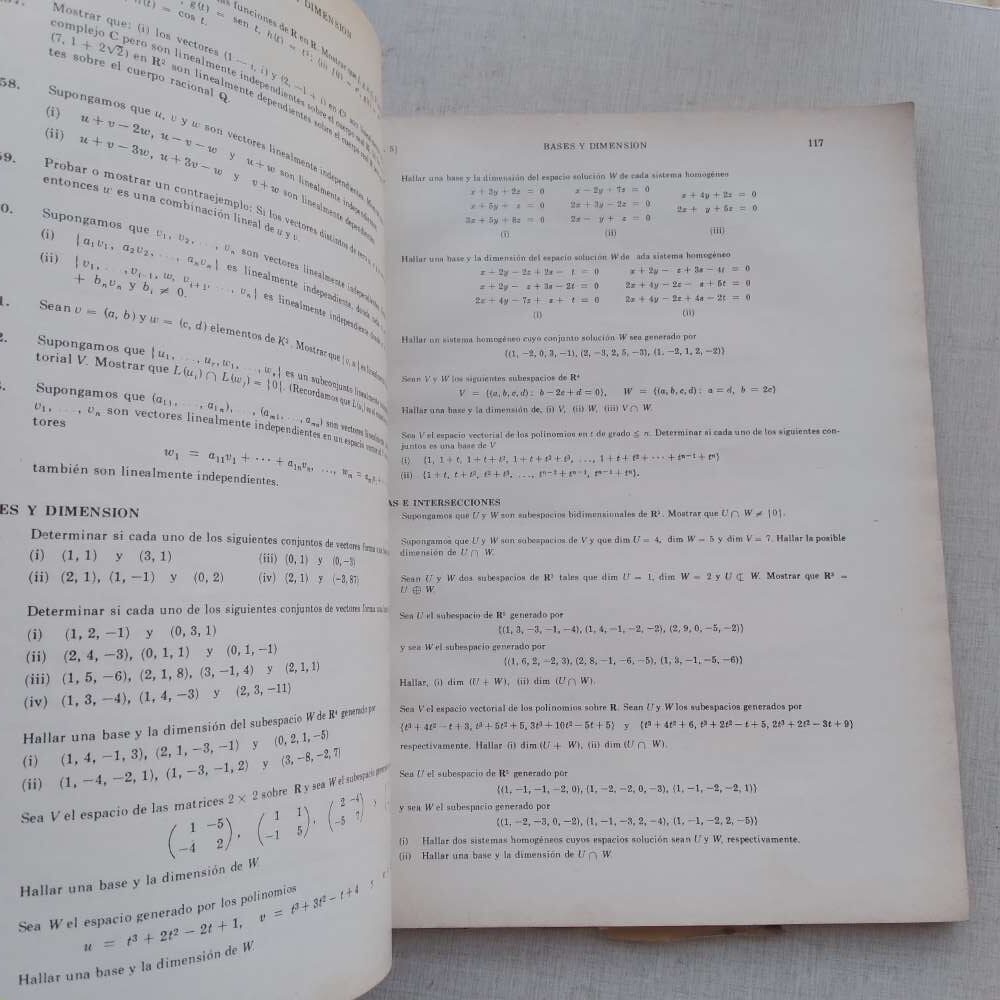 DIMENSION
las funciones de R en R. Mostrar que
h(t) = cos t. g(t) = sen t, h(t) = t²; (iii)
Mostrar que: (i) los vectores (1 − i, i) y (2, −1 + i) en C² son
complejo C pero son linealmente independientes sobre el cuerpo real R
(7, 1 + 2√2) en R² son linealmente dependientes sobre el cuerpo
tes sobre el cuerpo racional Q.
58. Supongamos que u, v y w son vectores linealmente independientes.
(i) u + v − 2w, u − v − w y u + w son linealmente independientes
(ii) u + v − 3w, u + 3v − w y v + w son linealmente dependientes
59. Probar o mostrar un contraejemplo: Si los vectores distintos de cero
entonces w es una combinación lineal de u y v.
0. Supongamos que v₁, v₂, . . . , vₙ son vectores linealmente independientes.
(i) {a₁v₁, a₂v₂, . . . , aₙvₙ} es linealmente independiente, donde cada
(ii) {v₁, . . . , vᵢ₋₁, w, vᵢ₊₁, . . . , vₙ} es linealmente independiente
+ bₙvₙ y bᵢ ≠ 0.
1. Sean v = (a, b) y w = (c, d) elementos de K². Mostrar que {v, w} es
2. Supongamos que {u₁, . . . , uᵣ, w₁, . . . , wₛ} es un subconjunto linealmente
torial V. Mostrar que L(uᵢ) ∩ L(wⱼ) = {0}. (Recordamos que L(uᵢ) es el
Supongamos que (a₁₁, . . . , a₁ₙ), . . . , (aₘ₁, . . . , aₘₙ) son vectores linealmente
v₁, . . . , vₙ son vectores linealmente independientes en un espacio vectorial
tores
w₁ = a₁₁v₁ + ··· + a₁ₙvₙ, . . . , wₙ =
también son linealmente independientes.
ES Y DIMENSION
Determinar si cada uno de los siguientes conjuntos de vectores forma una
(i) (1, 1) y (3, 1) (iii) (0, 1) y (0, −3)
(ii) (2, 1), (1, −1) y (0, 2) (iv) (2, 1) y (−3, 87)
Determinar si cada uno de los siguientes conjuntos de vectores forma una
(i) (1, 2, −1) y (0, 3, 1)
(ii) (2, 4, −3), (0, 1, 1) y (0, 1, −1)
(iii) (1, 5, −6), (2, 1, 8), (3, −1, 4) y (2, 1, 1)
(iv) (1, 3, −4), (1, 4, −3) y (2, 3, −11)
Hallar una base y la dimensión del subespacio W de R⁴ generado por
(i) (1, 4, −1, 3), (2, 1, −3, −1) y (0, 2, 1, −5)
(ii) (1, −4, −2, 1), (1, −3, −1, 2) y (3, −8, −2, 7)
Sea V el espacio de las matrices 2 × 2 sobre R y sea W el subespacio
( 1 −5 ) , ( 1 1 ) , ( 2 −4 ) y
( −4 2 ) ( −1 5 ) ( −5 7 )
Hallar una base y la dimensión de W.
Sea W el espacio generado por los polinomios
u = t³ + 2t² − 2t + 1, v = t³ + 3t² − t + 4 y
Hallar una base y la dimensión de W.
BASES Y DIMENSION 117
Hallar una base y la dimensión del espacio solución W de cada sistema homogéneo
x + 3y + 2z = 0 x − 2y + 7z = 0 x + 4y + 2z = 0
x + 5y + z = 0 2x + 3y − 2z = 0 2x + y + 5z = 0
3x + 5y + 8z = 0 2x − y + z = 0
(i) (ii) (iii)
Hallar una base y la dimensión del espacio solución W de ada sistema homogéneo
x + 2y − 2z + 2s − t = 0 x + 2y − z + 3s − 4t = 0
x + 2y − z + 3s − 2t = 0 2x + 4y − 2z − s + 5t = 0
2x + 4y − 7z + s + t = 0 2x + 4y − 2z + 4s − 2t = 0
(i) (ii)
Hallar un sistema homogéneo cuyo conjunto solución W sea generado por
{(1, −2, 0, 3, −1), (2, −3, 2, 5, −3), (1, −2, 1, 2, −2)}
Sean V y W los siguientes subespacios de R⁴
V = {(a, b, c, d) : b − 2c + d = 0}, W = {(a, b, c, d) : a = d, b = 2c}
Hallar una base y la dimensión de, (i) V, (ii) W, (iii) V ∩ W.
Sea V el espacio vectorial de los polinomios en t de grado ≤ n. Determinar si cada uno de los siguientes con-
juntos es una base de V
(i) {1, 1 + t, 1 + t + t², 1 + t + t² + t³, . . . , 1 + t + t² + ··· + tⁿ⁻¹ + tⁿ}
(ii) {1 + t, t + t², t² + t³, . . . , tⁿ⁻² + tⁿ⁻¹, tⁿ⁻¹ + tⁿ}.
AS E INTERSECCIONES
Supongamos que U y W son subespacios bidimensionales de R³. Mostrar que U ∩ W ≠ {0}.
Supongamos que U y W son subespacios de V y que dim U = 4, dim W = 5 y dim V = 7. Hallar la posible
dimensión de U ∩ W.
Sean U y W dos subespacios de R³ tales que dim U = 1, dim W = 2 y U ⊄ W. Mostrar que R³ =
U ⊕ W.
Sea U el subespacio de R⁵ generado por
{(1, 3, −3, −1, −4), (1, 4, −1, −2, −2), (2, 9, 0, −5, −2)}
y sea W el subespacio generado por
{(1, 6, 2, −2, 3), (2, 8, −1, −6, −5), (1, 3, −1, −5, −6)}
Hallar, (i) dim (U + W), (ii) dim (U ∩ W).
Sea V el espacio vectorial de los polinomios sobre R. Sean U y W los subespacios generados por
{t³ + 4t² − t + 3, t³ + 5t² + 5, 3t³ + 10t² − 5t + 5} y {t³ + 4t² + 6, t³ + 2t² − t + 5, 2t³ + 2t² − 3t + 9}
respectivamente. Hallar (i) dim (U + W), (ii) dim (U ∩ W).
Sea U el subespacio de R⁵ generado por
{(1, −1, −1, −2, 0), (1, −2, −2, 0, −3), (1, −1, −2, −2, 1)}
y sea W el subespacio generado por
{(1, −2, −3, 0, −2), (1, −1, −3, 2, −4), (1, −1, −2, 2, −5)}
(i) Hallar dos sistemas homogéneos cuyos espacios solución sean U y W, respectivamente.
(ii) Hallar una base y la dimensión de U ∩ W.